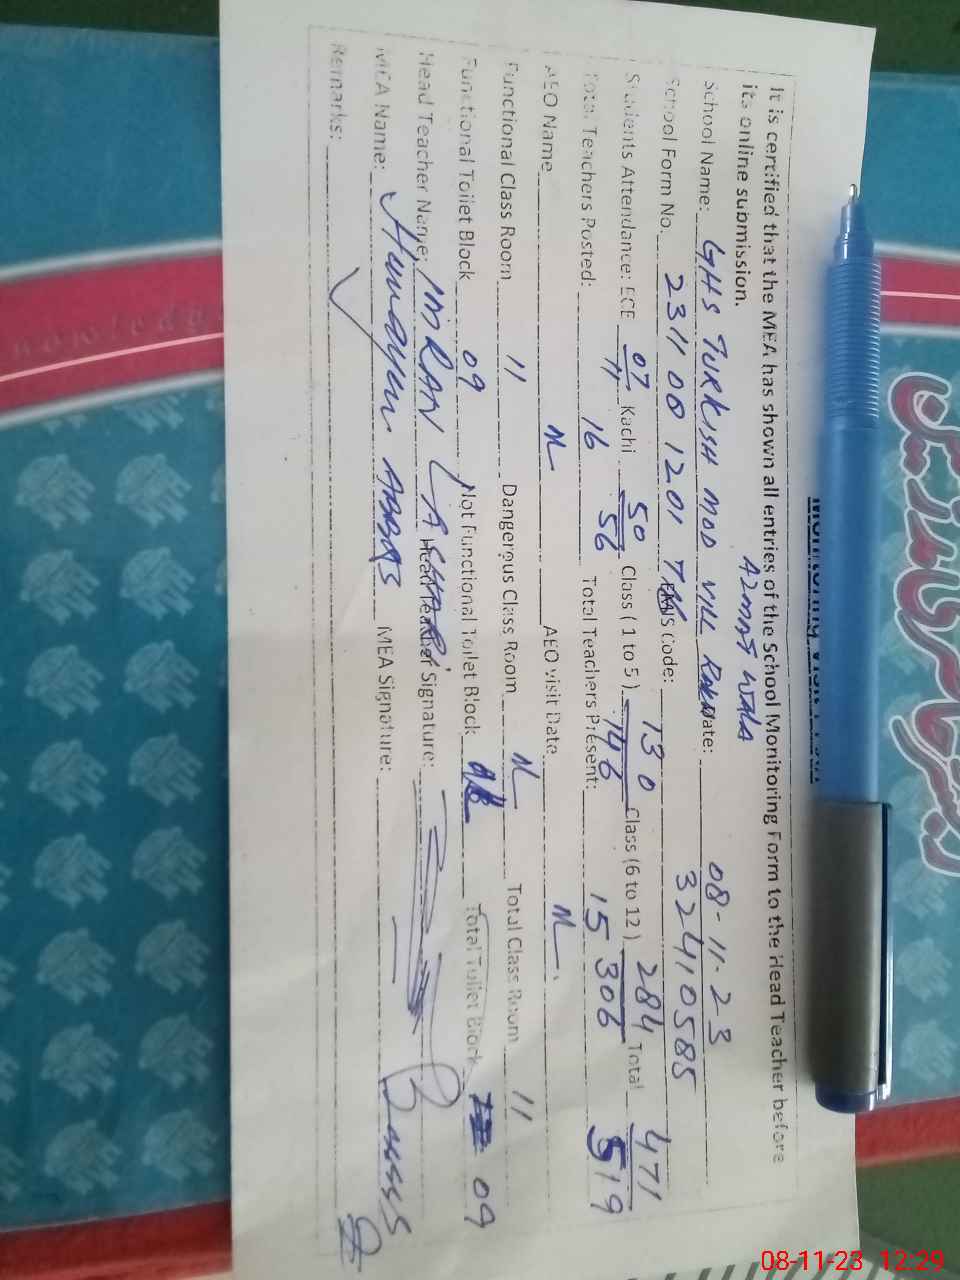 Monitoring Visit
It is certified that the MEA has shown all entries of the School Monitoring Form to the Head Teacher before
its online submission.
Azmat Wala
School Name: GHS TURKISH MOD VILL Rakh Date: 08-11-23
School Form No. 2311 08 1201 Code: 32410585
Students Attendance: ECE 07/11 Kachi 50/56 Class ( 1 to 5 ) 130/146 Class (6 to 12 ) 284/306 Total 471/519
Total Teachers Posted: 16 Total Teachers Present: 15
AEO Name AEO visit Date
Functional Class Room 11 Dangerous Class Room Total Class Room 11
Functional Toilet Block 09 Not Functional Toilet Block Total Toilet Block 09
Head Teacher Name: IMRAN LASHARI Head Teacher Signature:
MEA Name: Humayun ABBAS MEA Signature:
Remarks:
Knowledge
08-11-23 12:29